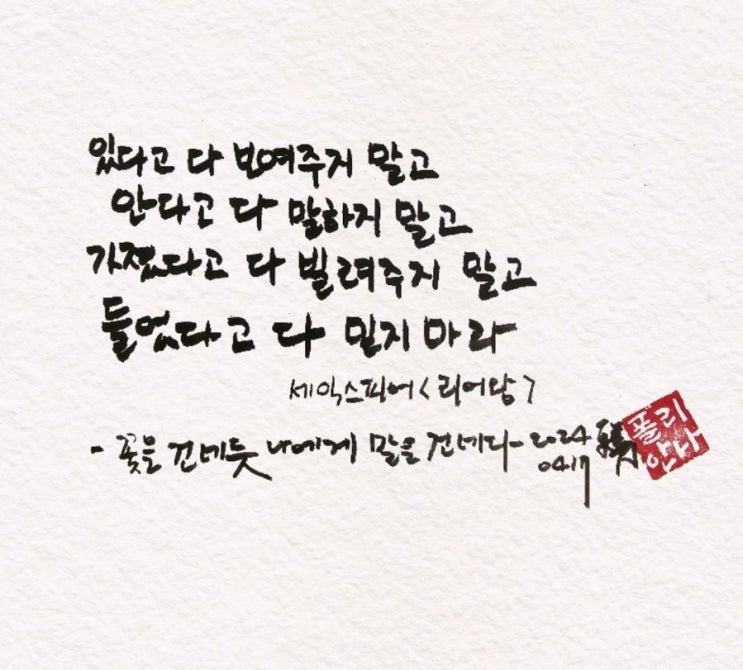 있다고 다 보여주지 말고
안다고 다 말하지 말고
가졌다고 다 빌려주지 말고
들었다고 다 믿지 마라
세익스피어 < 리어왕 >
- 꽃을 건네듯 나에게 말을 건네다 - 2024
0417
폴리
안나